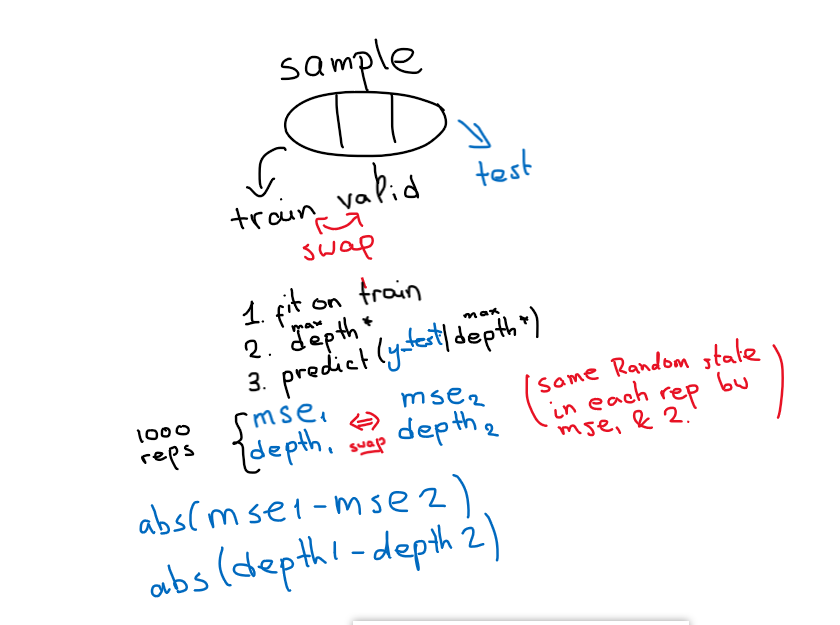 sample
test
train valid
swap
1. fit on train
2. max depth*
3. predict (y_test | max depth*)
1000 reps
mse₁ ⇔ mse₂
depth₁ swap depth₂
(same Random state
in each rep bw
mse₁ & 2.)
abs(mse1 - mse2)
abs(depth1 - depth2)